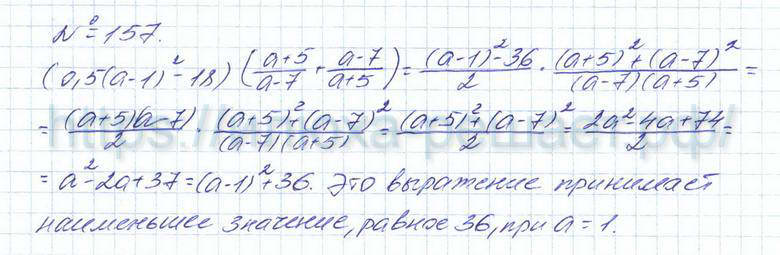 № 157.
(0,5(a-1)² - 18) (a+5/a-7 + a-7/a+5) = (a-1)² - 36/2 · (a+5)² + (a-7)²/(a-7)(a+5) =
= (a+5)(a-7)/2 · (a+5)² + (a-7)²/(a-7)(a+5) = (a+5)² + (a-7)²/2 = 2a² 4a + 74/2 =
= a² - 2a + 37 = (a-1)² + 36. Это выражение принимает
наименьшее значение, равное 36, при a = 1.